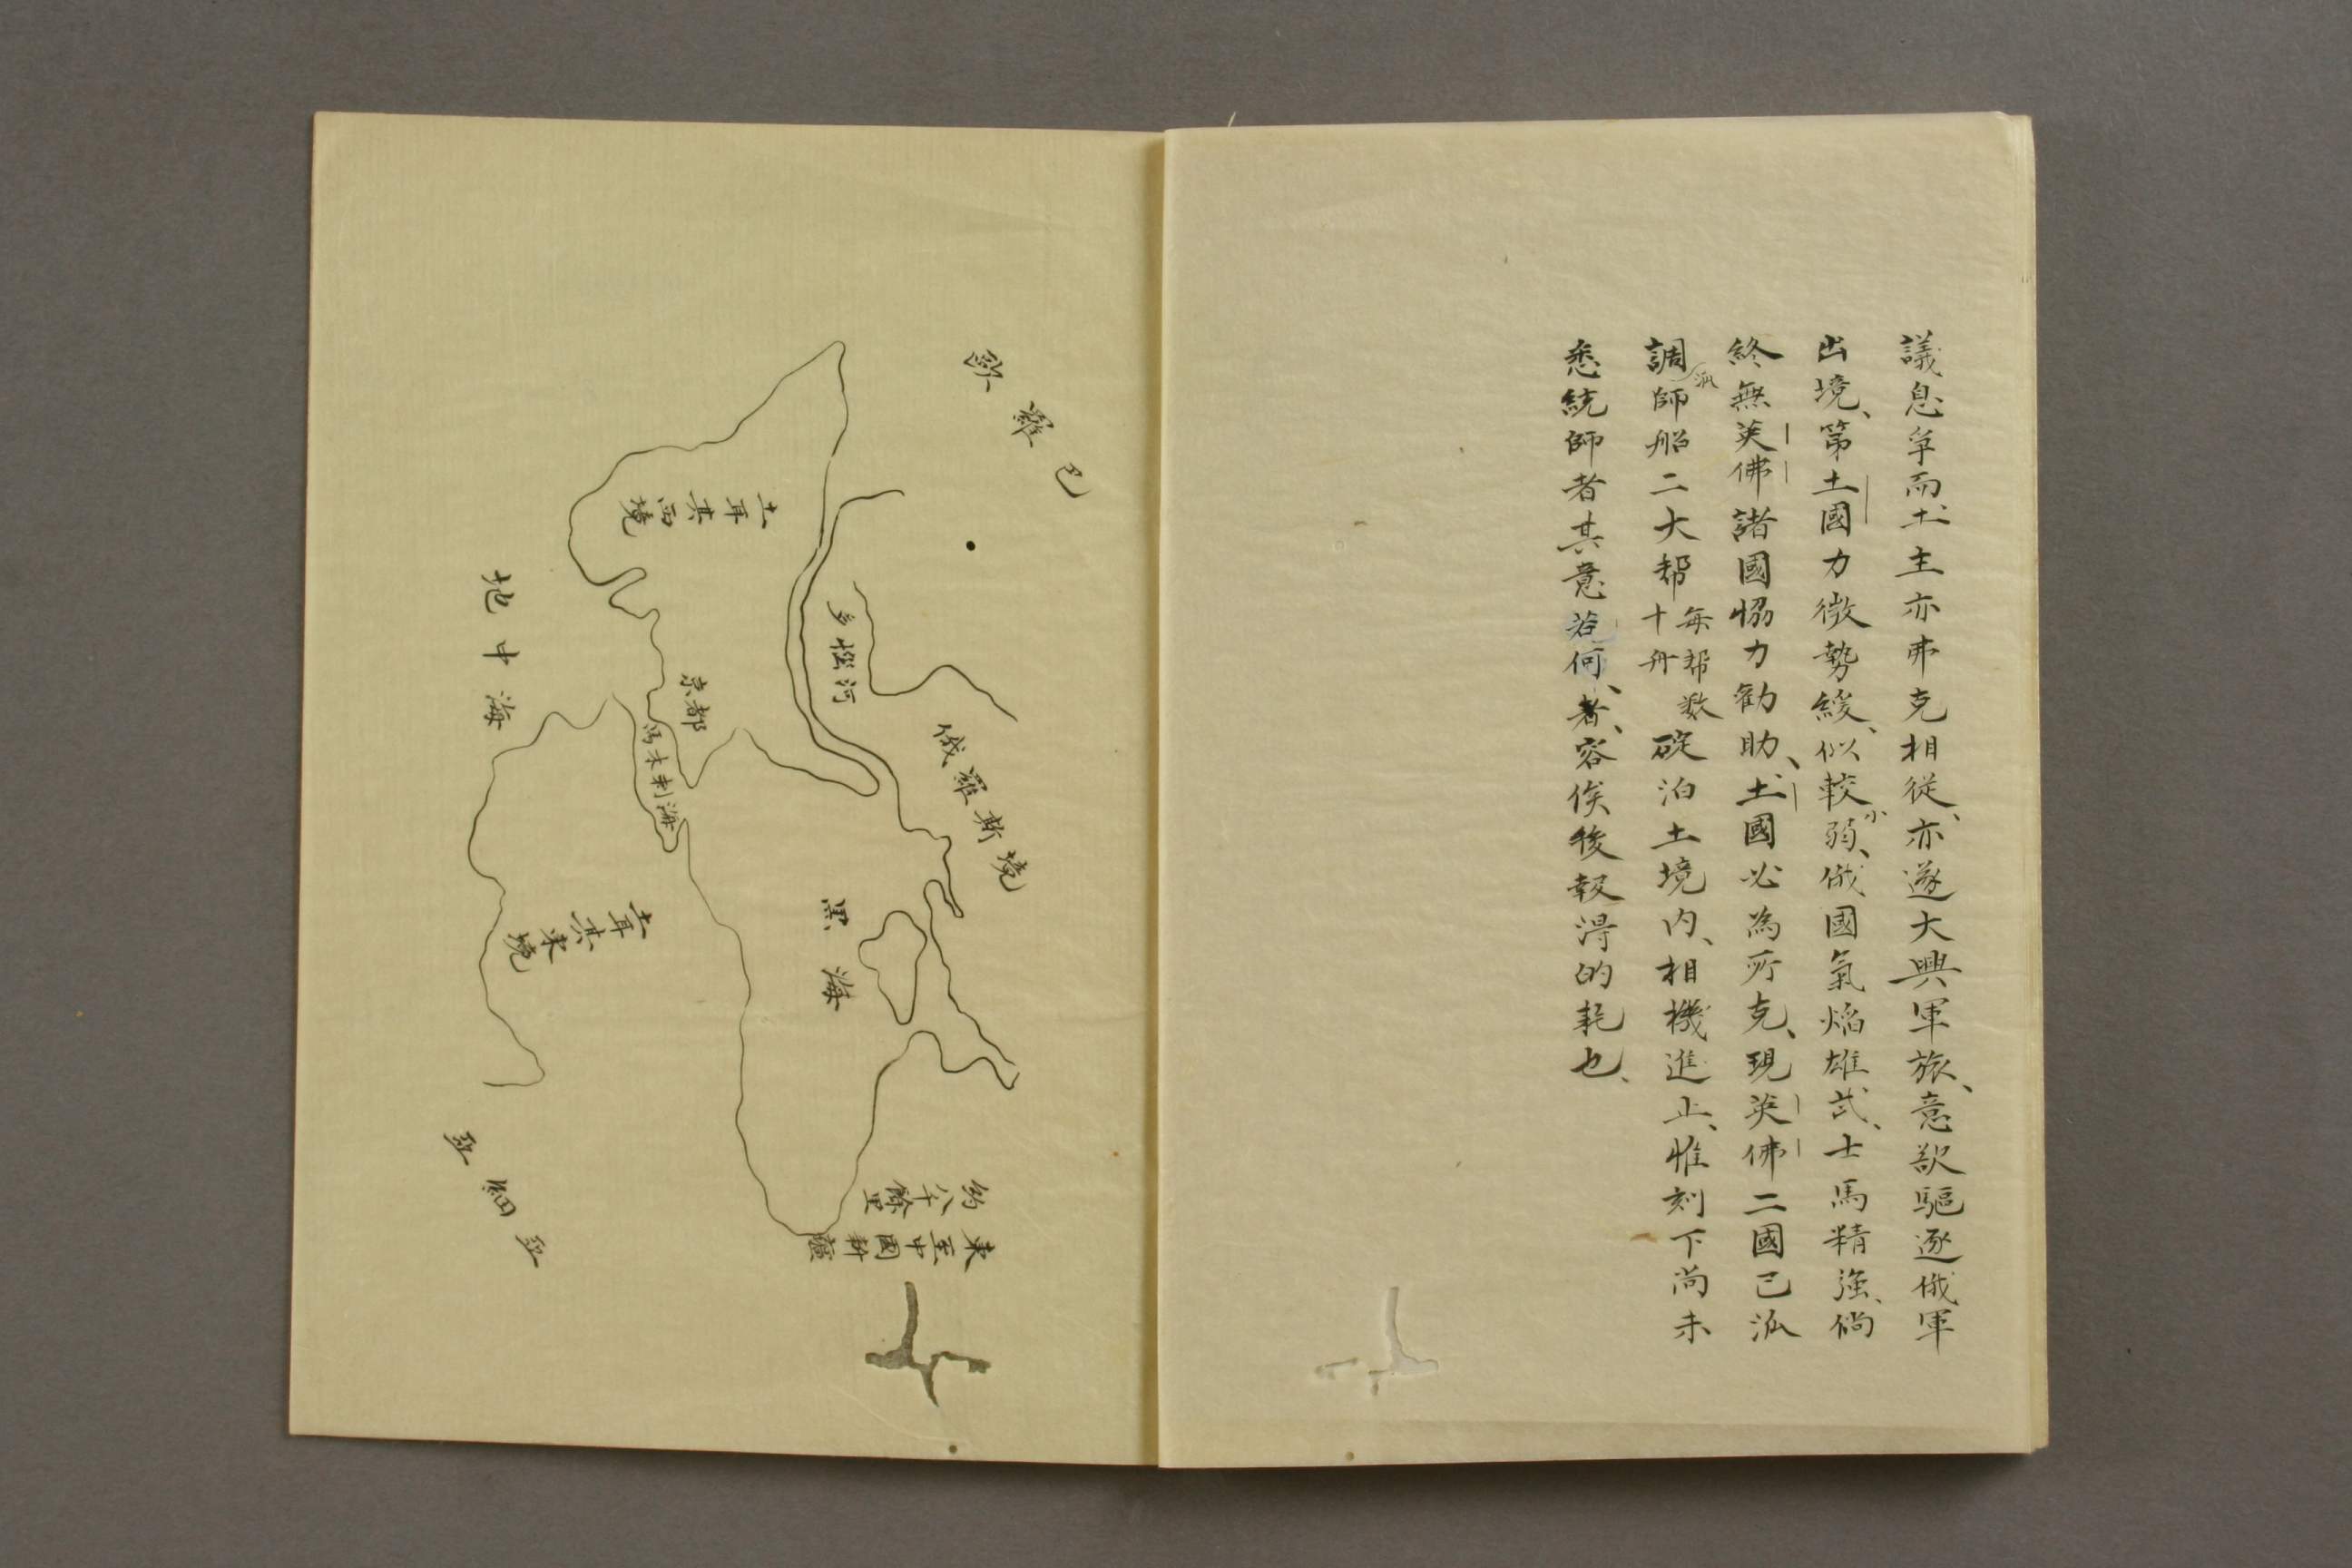 議息爭而土主亦弗克相從、亦遂大興軍旅、意欲驅逐俄軍
出境、第土國力微勢緩、似較小弱、俄國氣焰雄武、士馬精強、倘
終無英佛諸國協力勸助、土國必為所克、現英佛二國已派
調派師船二大帮每帮数十舟碇泊土境内、相機進止、惟刻下尚未
悉統師者其意若何、者、容俟後報得的耗也、
歐羅巴
俄羅斯境
多惱河
土耳其西境
京都
馬木剌海
地中海
黒海
土耳其東境
東至中國
約八千餘里
亞細亞